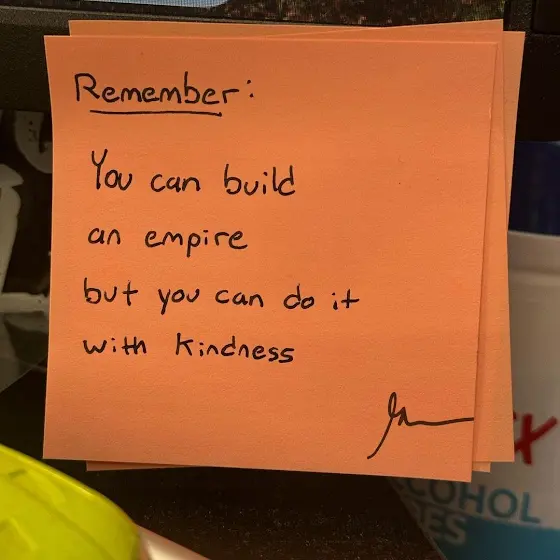 Remember:
You can build
an empire
but you can do it
with kindness
COHOL